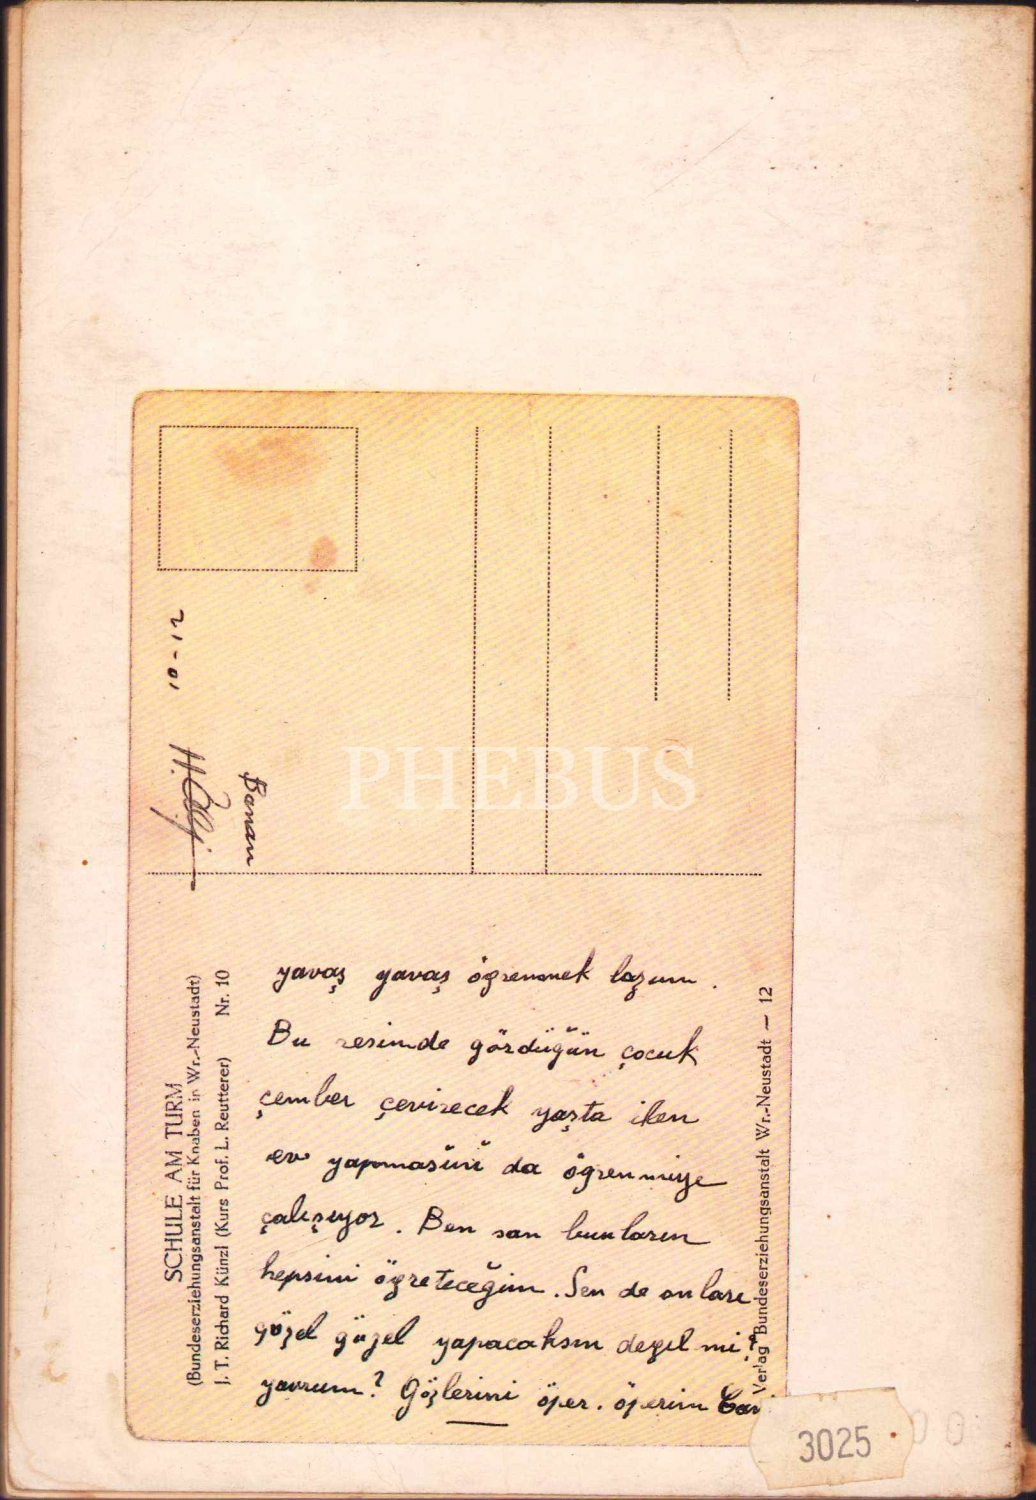 10-12
Banan
SCHULE AM TURM
(Bundeserziehungsanstalt für Knaben in Wr.-Neustadt)
J. T. Richard Künzl (Kurs Prof. L. Reutterer) Nr. 10
yavaş yavaş ögrenmek lazım.
Bu resimde gördüğün çocuk
çember çevirecek yaşta iken
ev yapmasini da ögrenmiye
çalışıyor. Ben san bunların
hepsini öğreteceğim. Sen de onları
güzel güzel yapacaksın degil mi?
yavrum? Gözlerini öper. öperim
Verlag Bundeserziehungsanstalt Wr.-Neustadt — 12
PHEBUS
3025